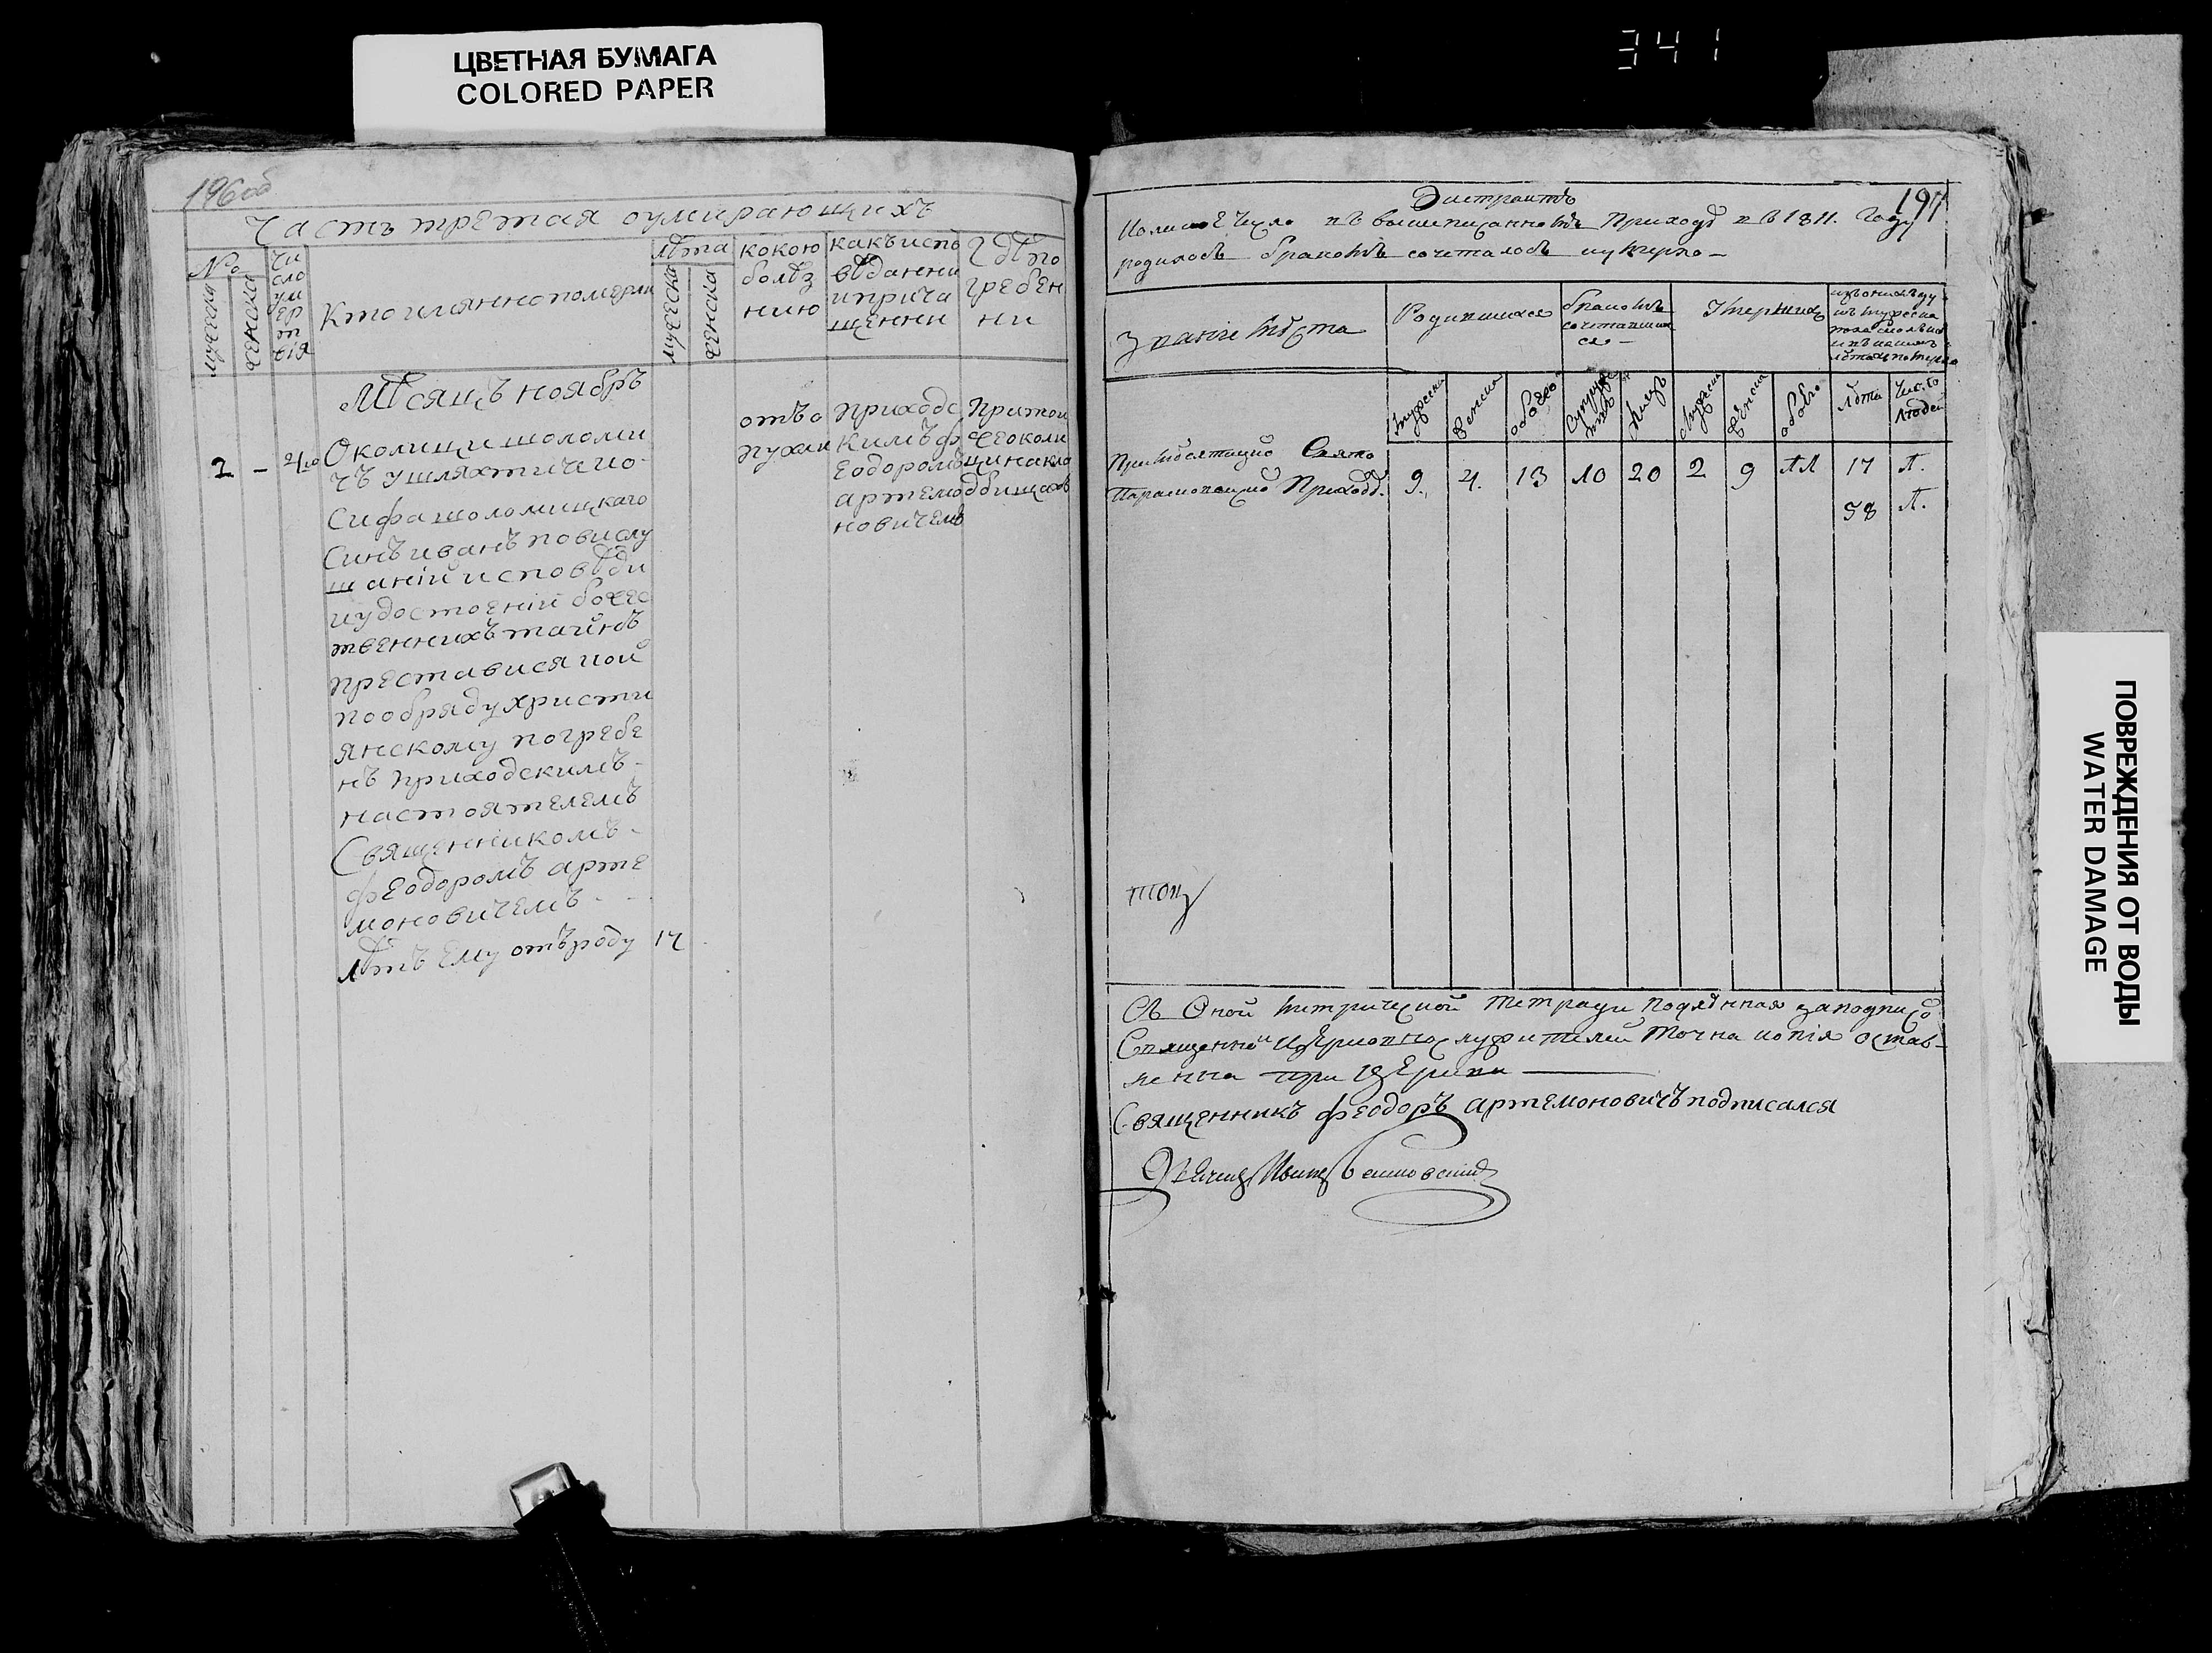 ЦВЕТНАЯ БУМАГА
COLORED PAPER
341
196об
Часть третая оумирающихъ
№
мужеска
женска
Число умертвія
Кто имянно померли
лѣта
мужеска
женска
кокою болѣзнию
какъ исповѣданни и причащенни
Гдѣ погребенни
Мѣсяцъ ноябръ
2 -
Околици шоломи
чъ у шляхтича ио
сифа шоломицкаго
Синъ иванъ по вислу
шаній исповѣди
и удостоеній божес
твеннихъ тайнъ
преставися и ой
по обряду христи
янскому погребе
нъ приходскимъ
настоятелемъ
Священникомъ
феодоромъ арте
моновичемъ
лѣтъ ему отъ роду 17
отъ о
пухли
Приходс
кимъ ф
еодоромъ
артемо
новичемъ
При той
же околи
ци на кла
дбищах
197
Экстрактъ
Коликое число въ вышеписанномъ Приходѣ въ 1811. Году
родилось браковъ сочеталось и умерло -
Званіе мѣста
Родившихся
браковъ сочетавшихся -
Умершихъ
мужеска
женска
обоего
Супружествъ
лицъ
мужеска
женска
обоего
лѣта
Число людей
Парамоновцкой Приходѣ. 9. 4. 13 10 20 2 9 11 17 1.
58 1.
Съ Оной метрической тетради подлѣнная за подписо
Священно и церковно служителей точна копія остав-
ленна при церкви
Священникъ феодоръ артемоновичъ подписался
ПОВРЕЖДЕНИЯ ОТ ВОДЫ
WATER DAMAGE